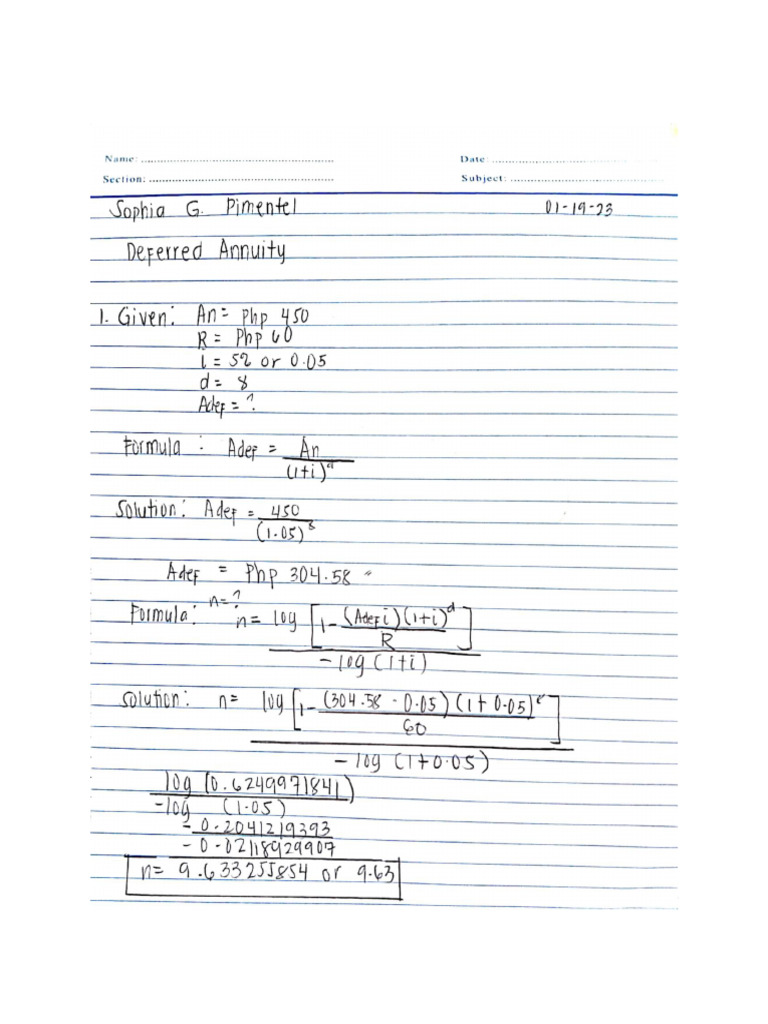 Name: ........................................................ Date: ........................................................
Section: ........................................................ Subject: ........................................................
Sophia G. Pimentel 01-19-23
Deferred Annuity
1. Given: An = Php 450
R = Php 60
i = 5% or 0.05
d = 8
Adef = ?
Formula : Adef = An
(1+i)^d
Solution: Adef = 450
(1.05)^8
Adef = Php 304.58 "
n=?
Formula: n = log [1- (Adef i)(1+i)^d
R ]
- log (1+i)
Solution: n = log [1- (304.58 · 0.05)(1+0.05)^8
60 ]
- log (1+0.05)
log (0.6249971841)
-log (1.05)
-0.2041219393
-0.02118929907
n= 9.633255854 or 9.63